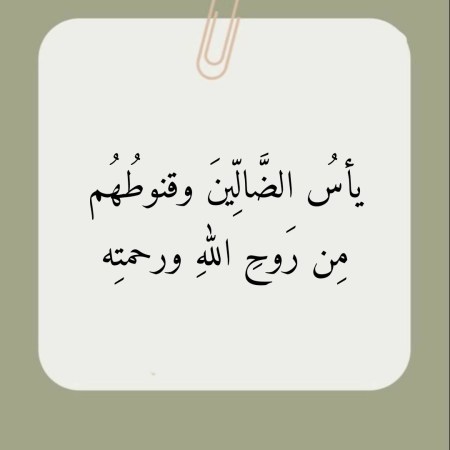 يأسُ الضَّالِّينَ وقنوطُهُم
مِن رَوحِ اللهِ ورحمتِه